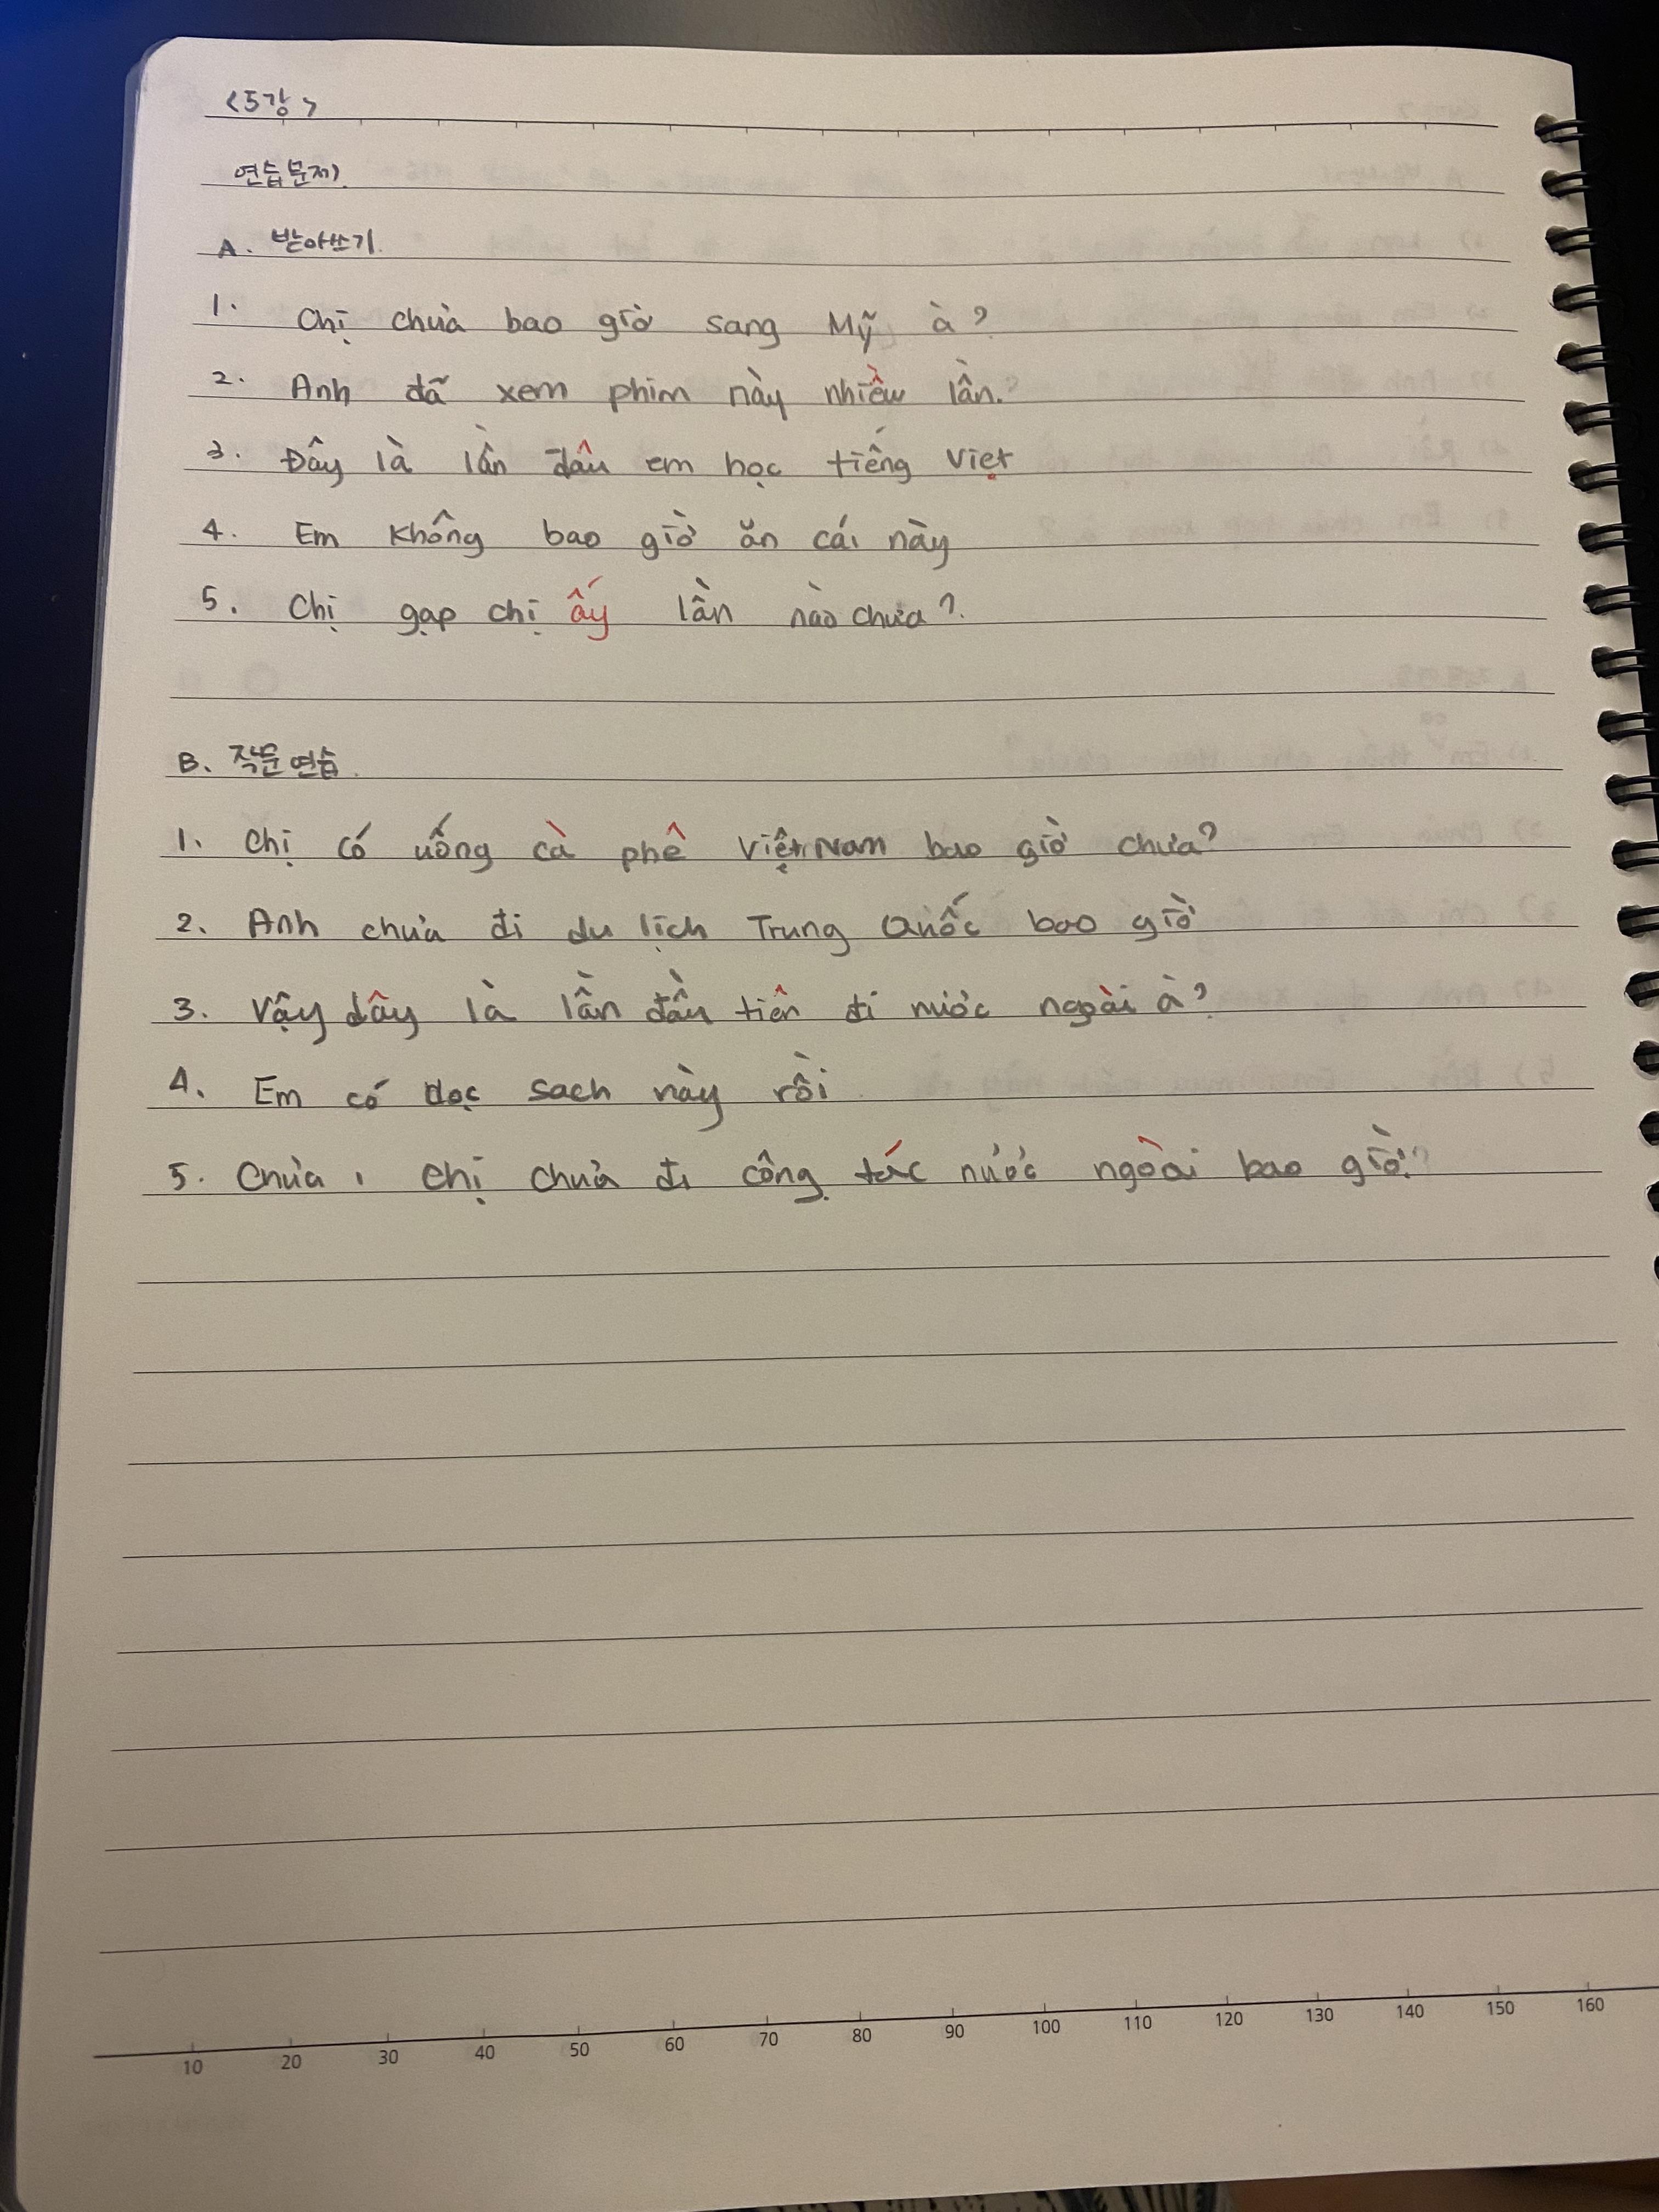 <5강>
연습문제)
A. 받아쓰기.
1. Chị chưa bao giờ sang Mỹ à?
2. Anh đã xem phim này nhiều lần.?
3. Đây là lần đầu em học tiếng Việt
4. Em không bao giờ ăn cái này
5. Chị gạp chị ấy lần nào chưa?
B. 작문 연습.
1. Chị có uống cà phê Việt Nam bao giờ chưa?
2. Anh chưa đi du lịch Trung Quốc bao giờ
3. Vậy dây là lần đần tiên đi nước ngoài à?
4. Em có dọc sach này rồi.
5. Chưa, chị chưa đi công tác nước ngoài bao giờ.?
10 20 30 40 50 60 70 80 90 100 110 120 130 140 150 160